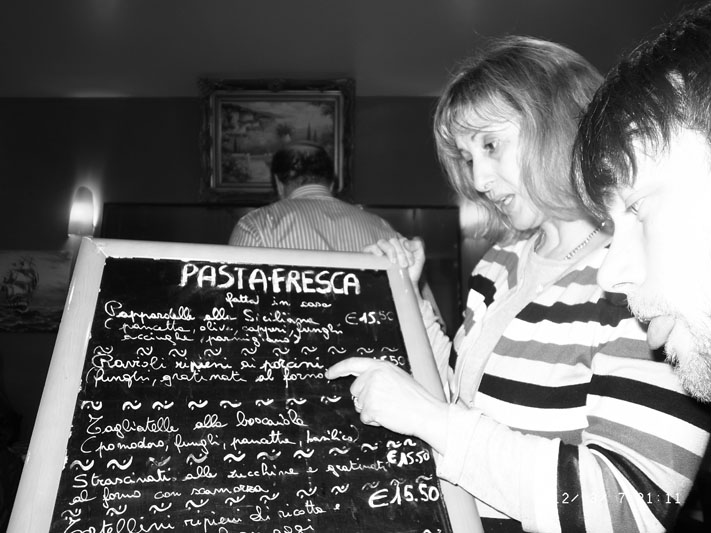 PASTA·FRESCA
fatta in casa
Pappardelle alla Siciliana €15.50
(pancetta, olive, capperi, funghi
acciughe, parmigiano)
Ravioli ripieni ai porcini 50
funghi, gratinati al forno
Tagliatelle alla boscaiola
(pomodoro, funghi, pancetta, basilico)
€15.50
Strascinati alle zucchine e gratinati
al forno con scamorza €15.50
ripieni di ricotta e